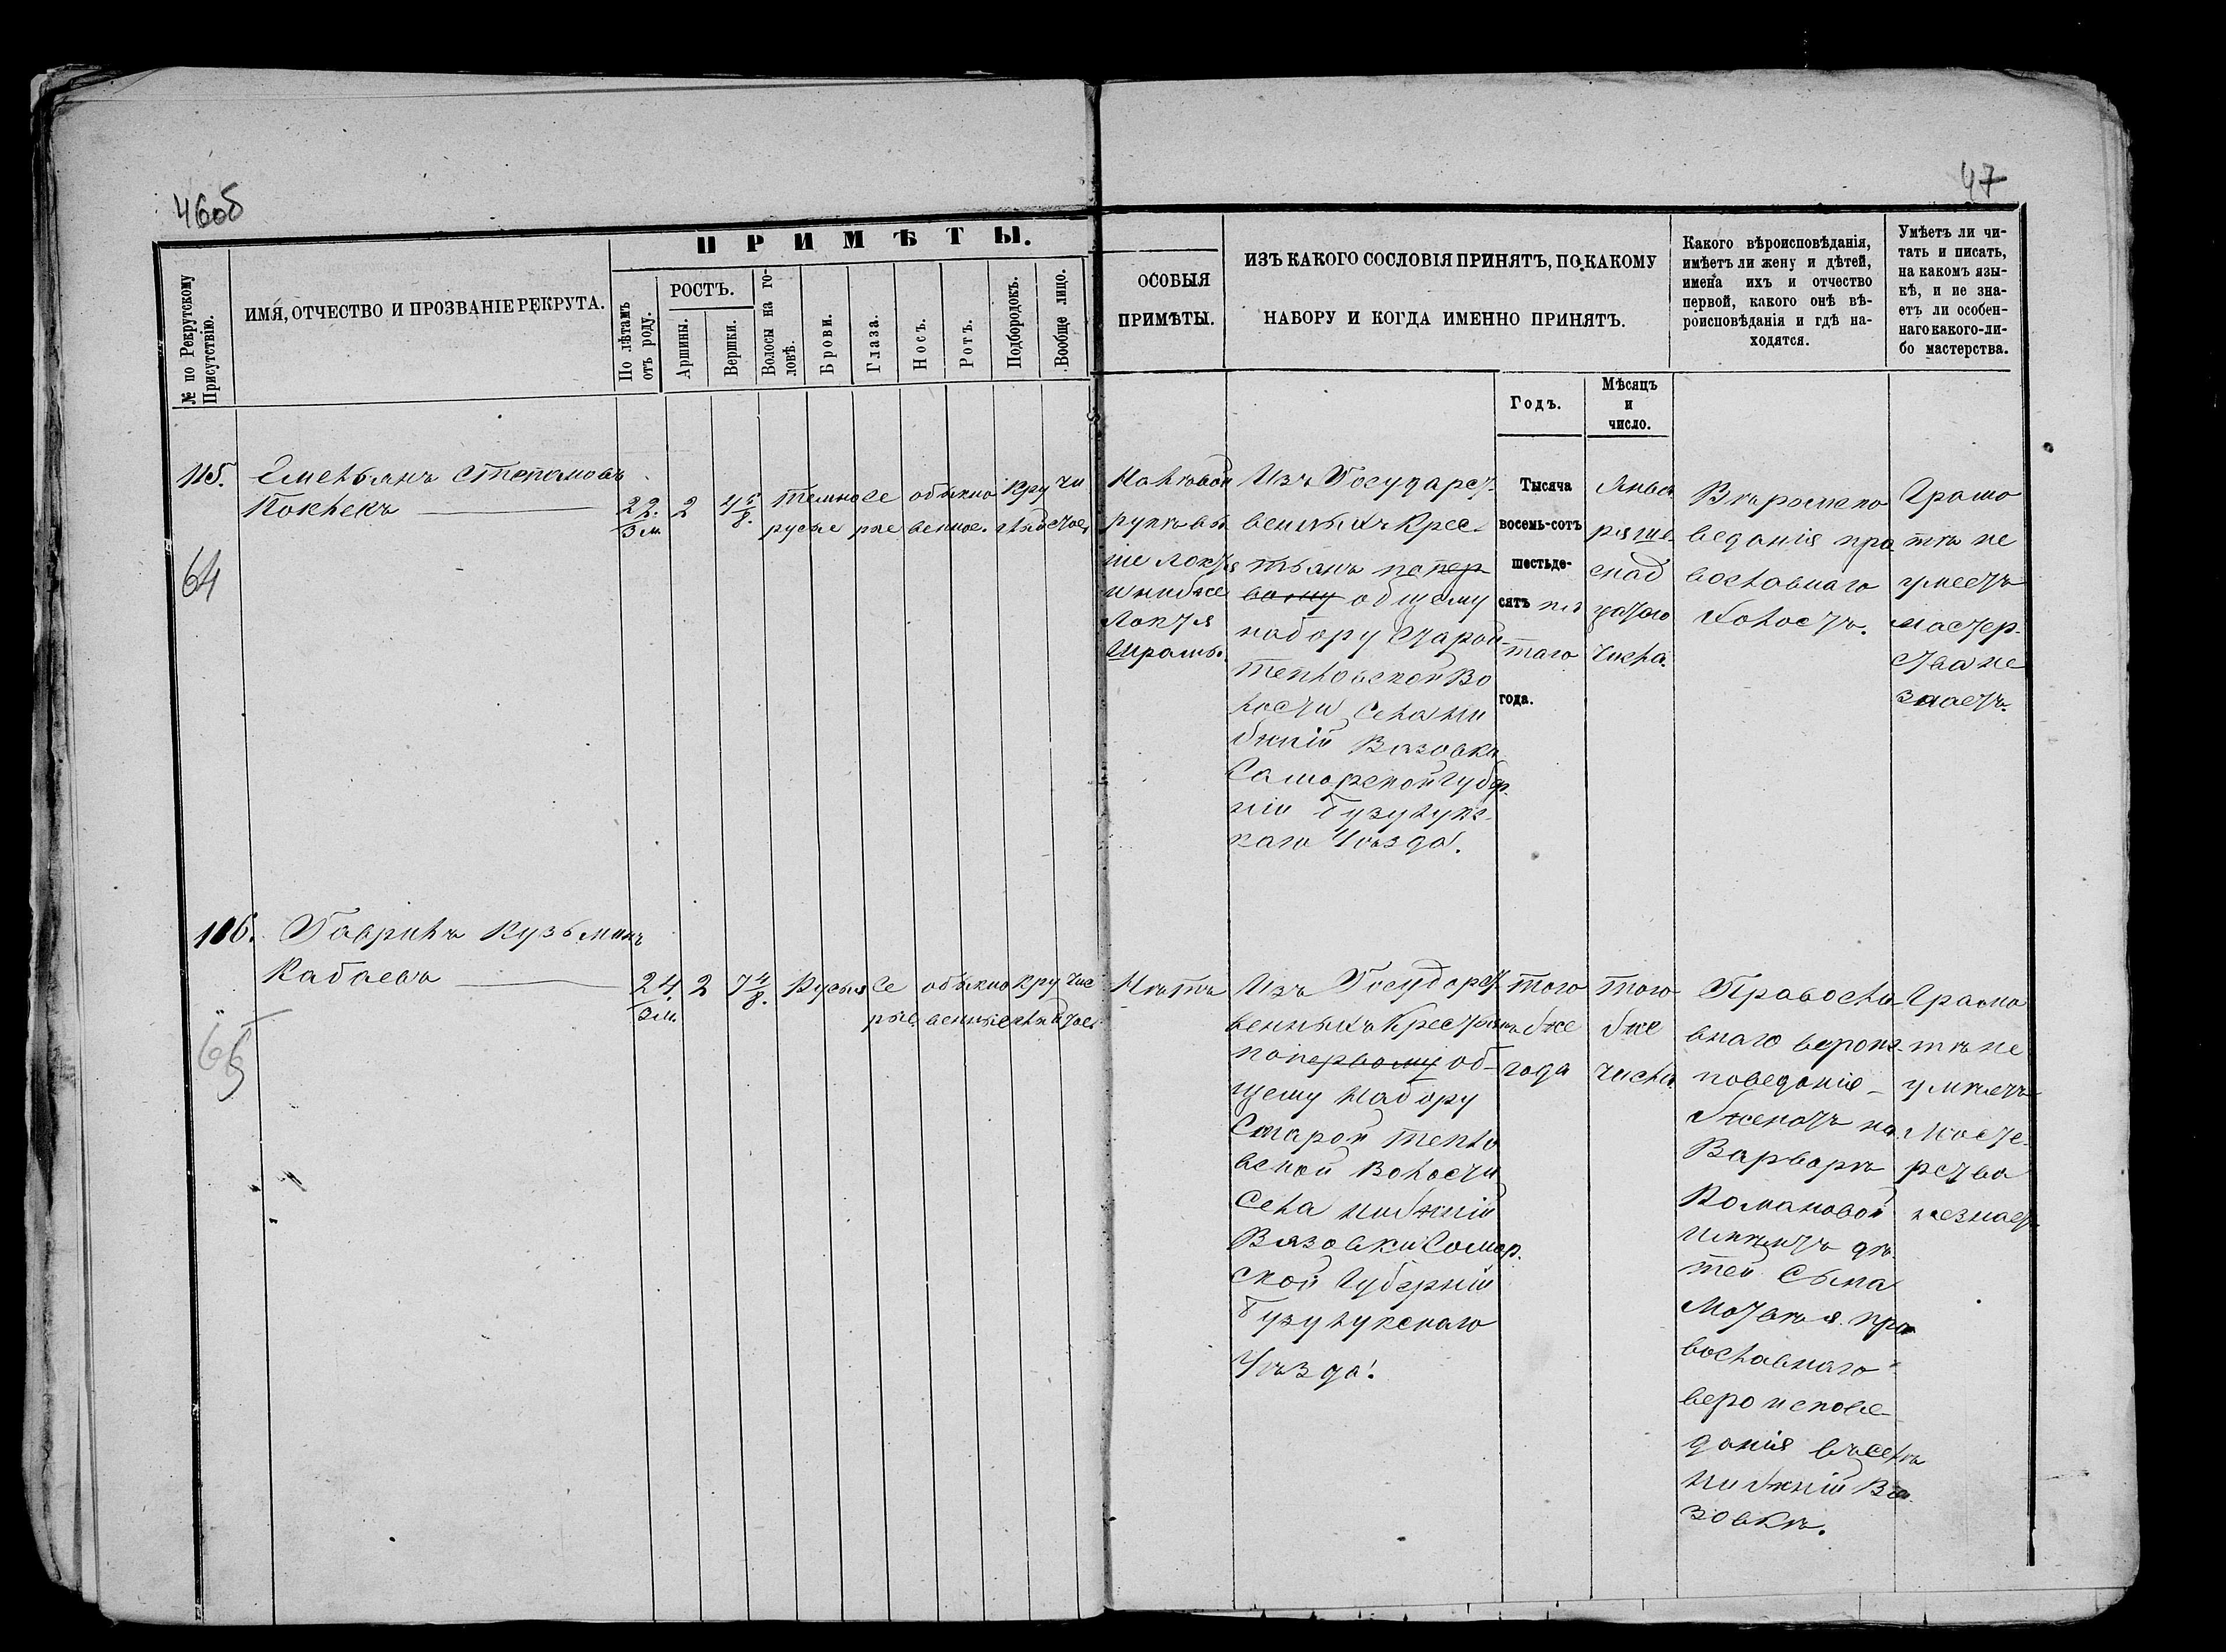 46об
47
ПРИМѢТЫ.
№ по Рекрутскому
Присутствію.
ИМЯ, ОТЧЕСТВО И ПРОЗВАНІЕ РЕКРУТА.
По лѣтамъ
отъ роду.
РОСТЪ.
Аршины.
Вершки.
Волосы на го-
ловѣ.
Брови.
Глаза.
Носъ.
Ротъ.
Подбородокъ.
Вообще лицо.
ОСОБЫЯ
ПРИМѢТЫ.
ИЗЪ КАКОГО СОСЛОВІЯ ПРИНЯТЪ, ПО КАКОМУ
НАБОРУ И КОГДА ИМЕННО ПРИНЯТЪ.
Годъ.
Мѣсяцъ
и
число.
Какого вѣроисповѣданія,
имѣетъ ли жену и дѣтей,
имена ихъ и отчество
первой, какого онѣ вѣ-
роисповѣданія и гдѣ на-
ходятся.
Умѣетъ ли чи-
тать и писать,
на какомъ язы-
кѣ, и не зна-
етъ ли особен-
наго какого-ли-
бо мастерства.
115.
Емельянъ Степановъ
64
22.
3 м.
2
4 5/8.
темно
русые
се
рые
обыкно
венное.
кру
глый
чи
стое
На лѣвой
рукѣ вы
ше локтя
и ниже
локтя
шрамы.
Изъ Государст
венныхъ Крес-
тьянъ по пер
вому общему
набору Старой
тепловской Во
лости Села Ни
жній Вязовки
Самарской губер.
ніи Бузулукс-
каго Уѣзда.
Тысяча
восемь-сотъ
шестьде-
сятъ пя
таго
года.
Янва
ря ше
снад
цатаго
числа.
Вѣроиспо
веданія пра
вославнаго
холостъ.
Грамо
тѣ не
умеетъ
мастер-
ства не
знаетъ.
116.
Гаврилъ Кузьминъ
Кабаевъ
65
24.
3 м.
2
7 4/8.
Русыя
Се
рые
обыкно
венные
кру
глый
чис
тое
Нѣтъ
Изъ Государст
венныхъ Крестьянъ
по первому об-
щему набору
Старой тепло
вской Волости
Села Нижній
Вязовки Самар.
ской Губерніи
Бузулукскаго
Уѣзда.
того
же
года
того
же
числа
Правосла
внаго вероис-
поведанія
женатъ на
Варварѣ
Романовой
имѣетъ дѣ
тей Сына
Матвѣя пра
вославнаго
вероиспове
данія въ селѣ
Нижній Вя
зовкѣ.
Грамо
тѣ не
умѣетъ
Масте-
рства
незнает